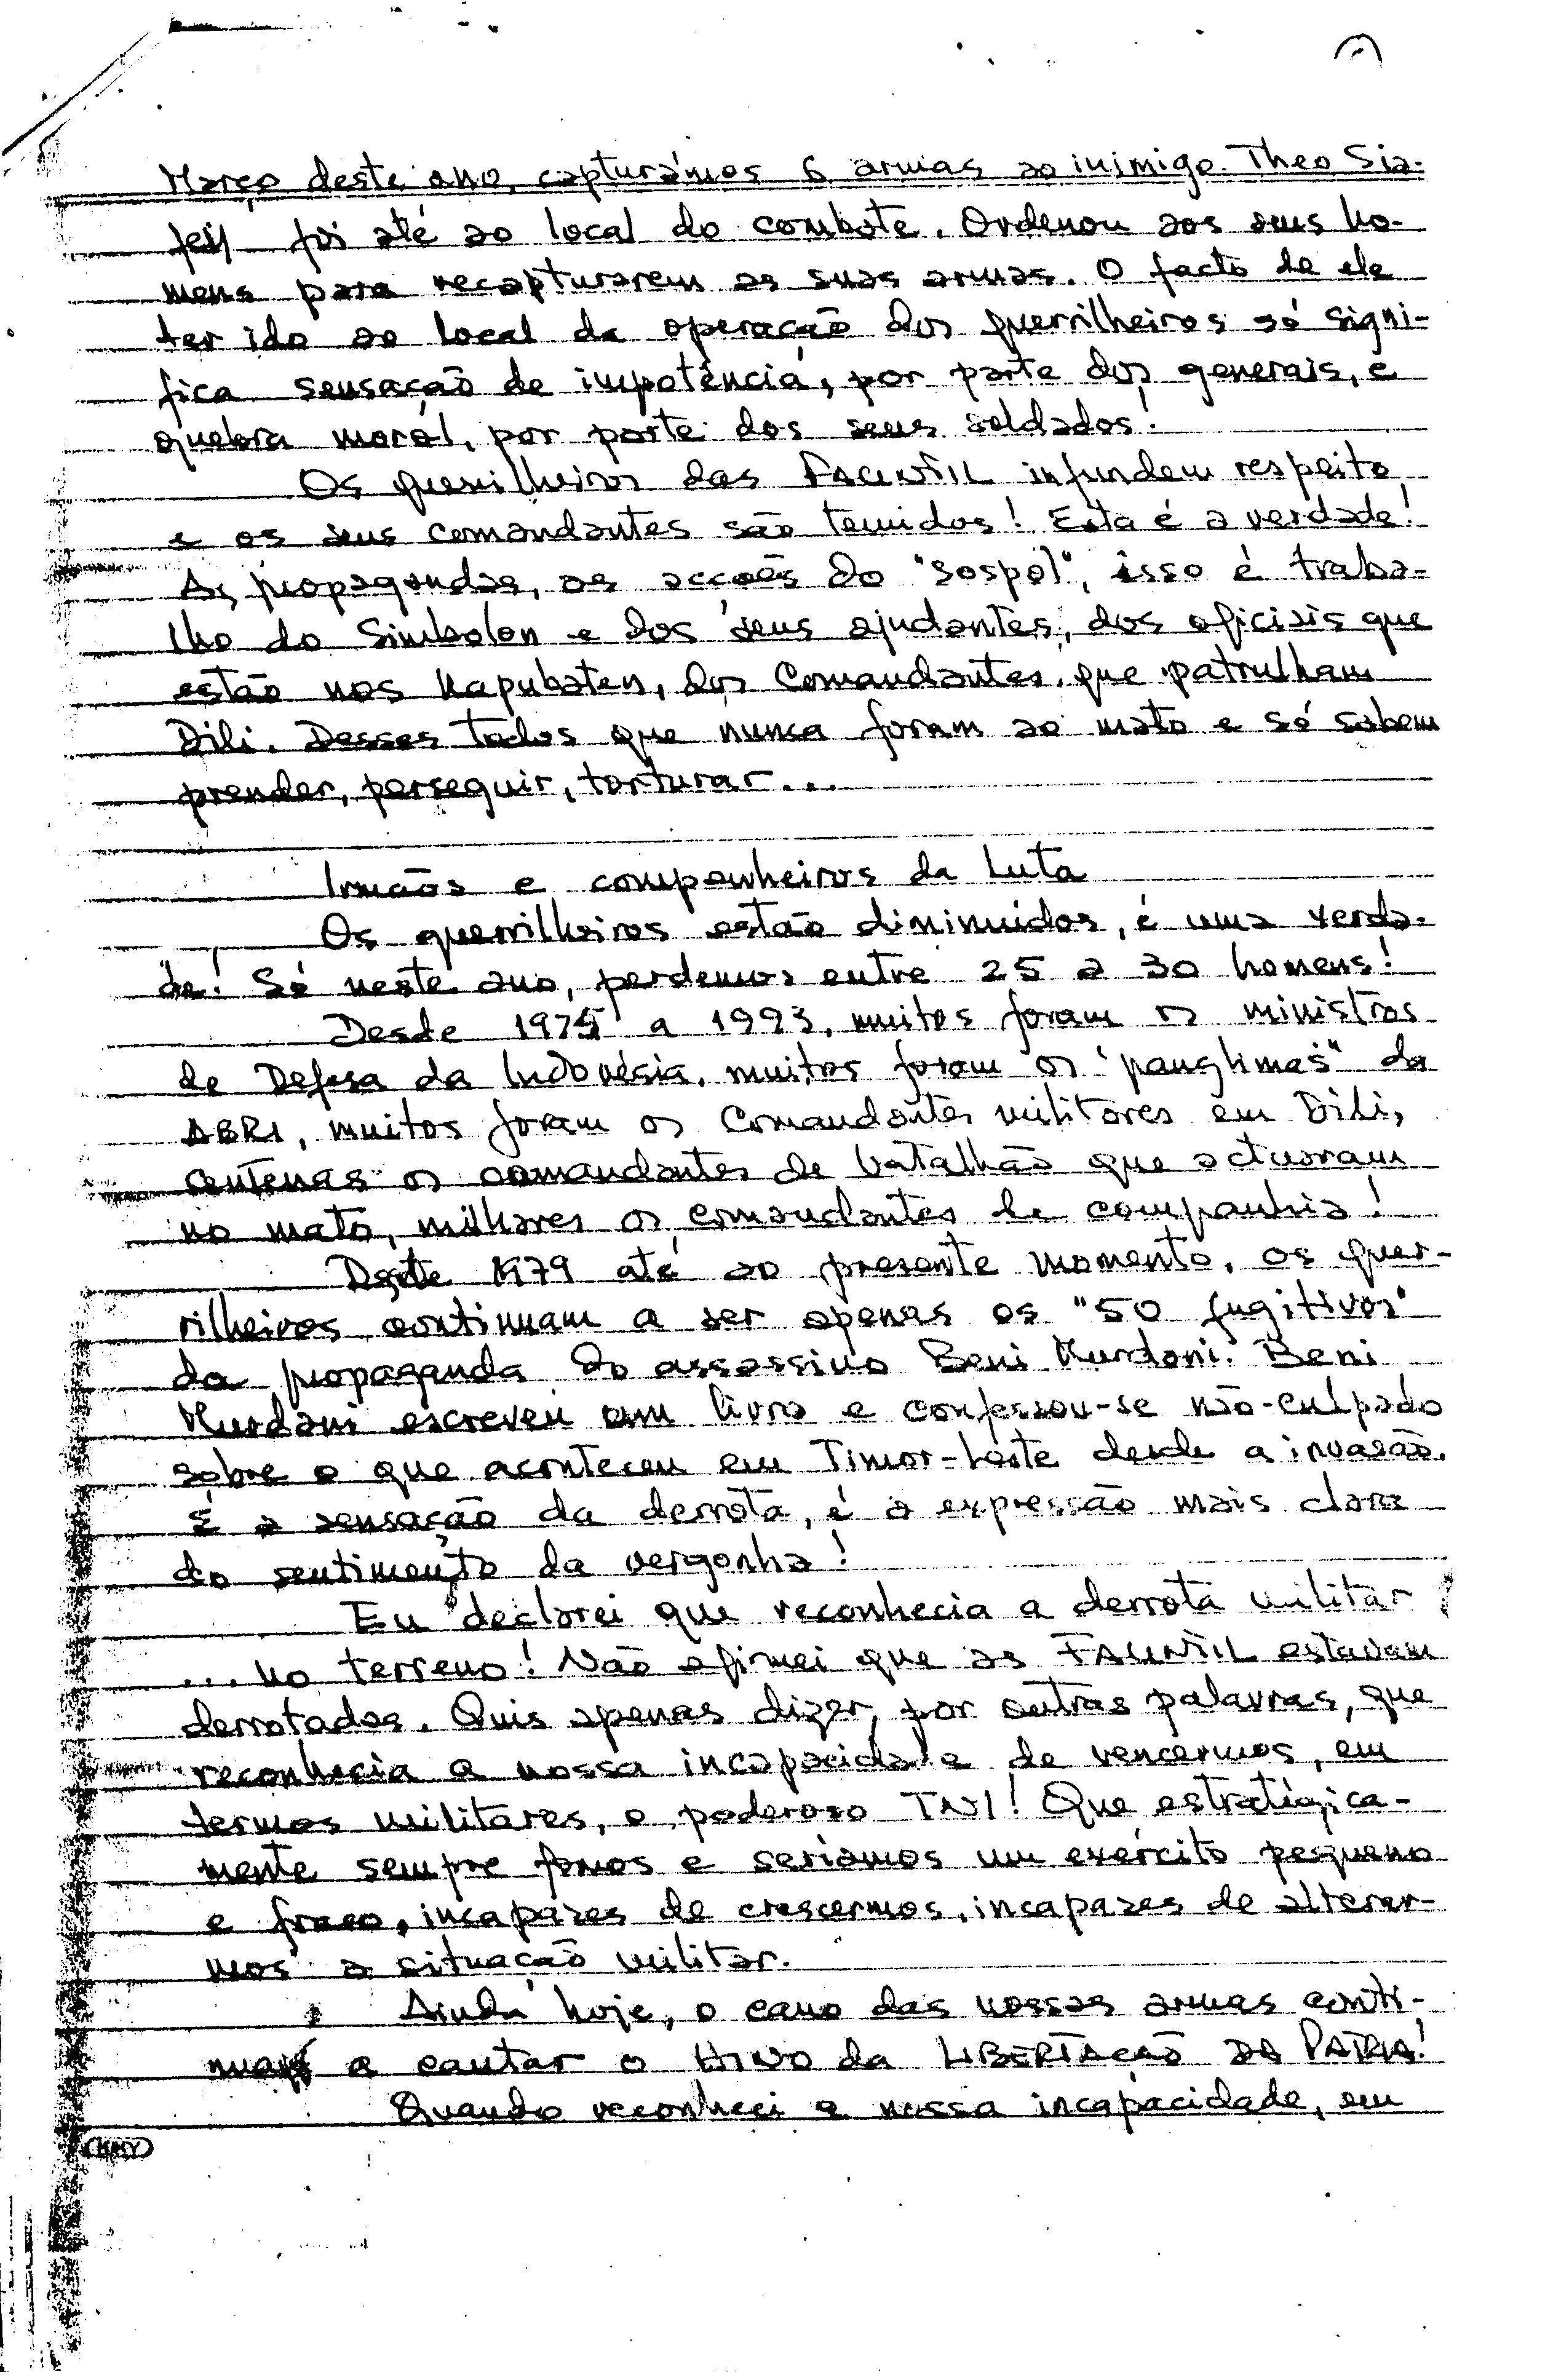 Março deste ano, capturámos 6 armas ao inimigo. Theo Sia-
feii foi até ao local do combate. Ordenou aos seus ho-
mens para recapturarem as suas armas. O facto de ele
ter ido ao local da operação dos guerrilheiros só signi-
fica sensação de impotência, por parte dos generais, e
quebra moral, por parte dos seus soldados!
Os guerrilheiros das FALINTIL infundem respeito
e os seus comandantes são temidos! Esta é a verdade!
As propagandas, as acções do "sospol", isso é traba-
lho do Simbolon e dos seus ajudantes, dos oficiais que
estão nos Kapubaten, dos Comandantes que patrulham
Dili. Desses todos que nunca foram ao mato e só sabem
prender, perseguir, torturar...
Irmãos e companheiros da Luta
Os guerrilheiros estão diminuídos, é uma verda-
de! Só neste ano, perdemos entre 25 a 30 homens!
Desde 1975 a 1993, muitos foram os ministros
de Defesa da Indonésia, muitos foram os "panglimas" da
ABRI, muitos foram os Comandantes militares em Dili,
centenas os comandantes de batalhão que actuaram
no mato, milhares os comandantes de companhia!
Desde 1979 até ao presente momento, os guer-
rilheiros continuam a ser apenas os "50 fugitivos"
da propaganda do assassino Beni Murdani. Beni
Murdani escreveu um livro e confessou-se não-culpado
sobre o que aconteceu em Timor-Leste desde a invasão.
É a sensação da derrota, é a expressão mais clara
do sentimento da vergonha!
Eu declarei que reconhecia a derrota militar
... no terreno! Não afirmei que as FALINTIL estavam
derrotadas. Quis apenas dizer, por outras palavras, que
reconhecia a nossa incapacidade de vencermos, em
termos militares, o poderoso TNI! Que estratégica-
mente sempre fomos e seríamos um exército pequeno
e fraco, incapazes de crescermos, incapazes de alterar-
mos a situação militar.
Ainda hoje, o cano das nossas armas conti-
nua a cantar o HINO da LIBERTAÇÃO DA PATRIA!
Quando reconheci a nossa incapacidade, em